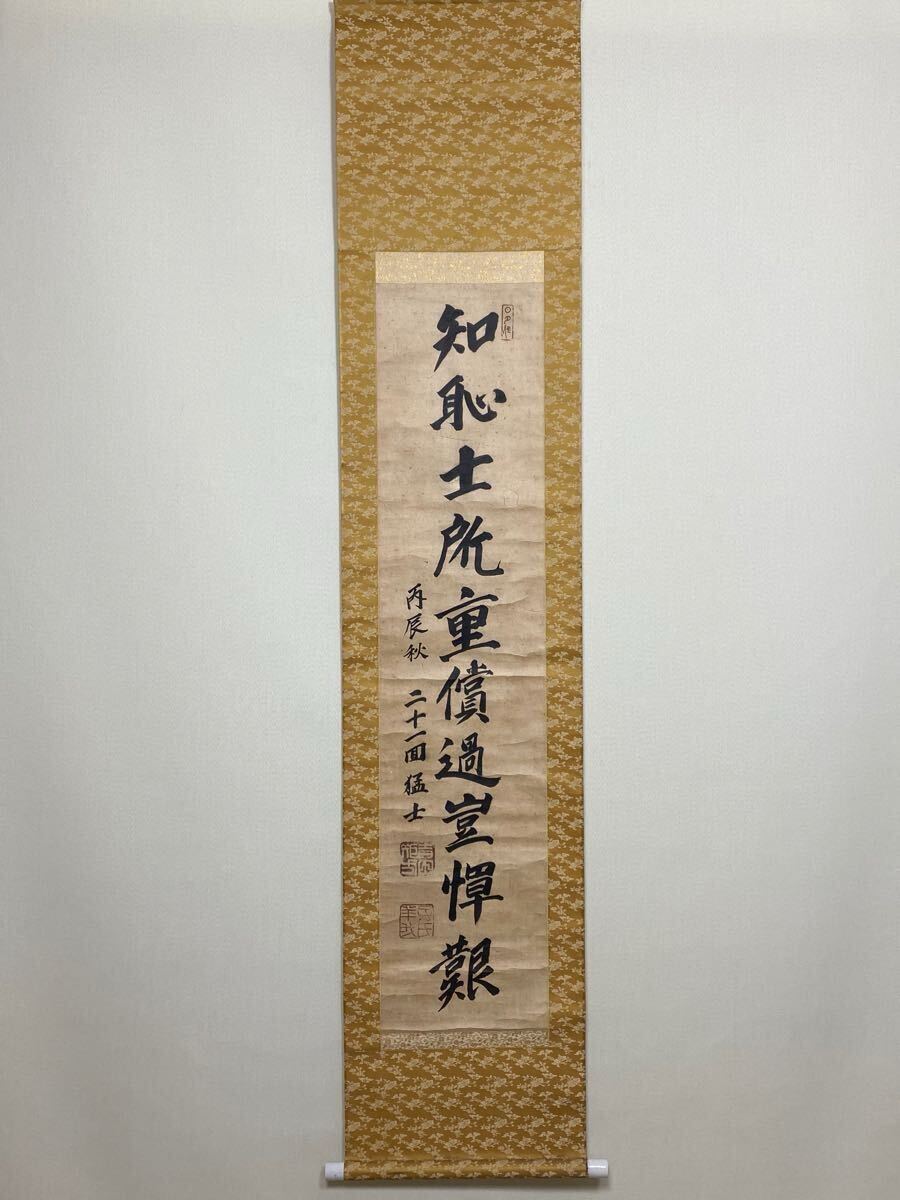 知恥士所重償過豈憚艱
丙辰秋 二十一回猛士